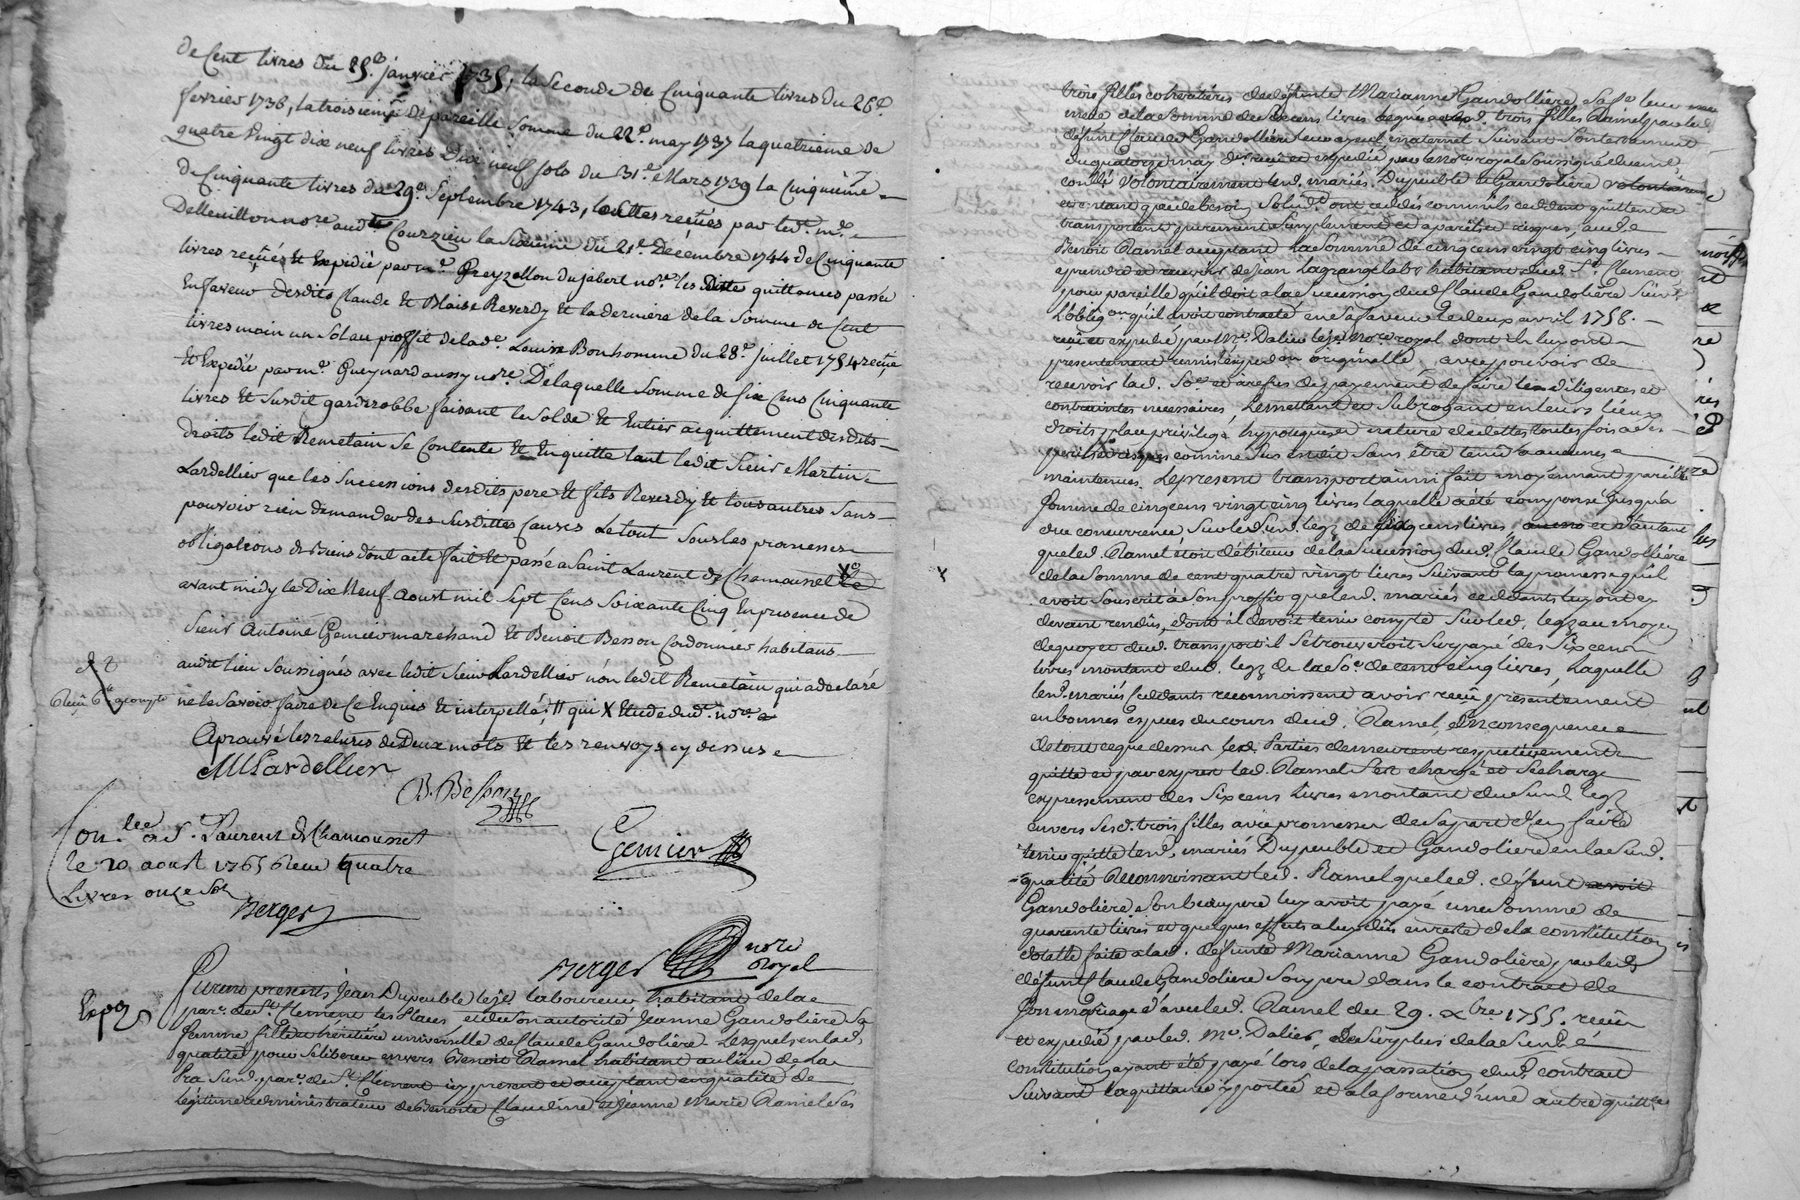 de Cent livres du 25e janvier 1735, la Seconde de Cinquante livres du 26e
fevrier 1736, la troisieme de pareille Somme du 22e may 1737 la quatrieme de
quatre Vingt dix neuf livres Dix neuf sols du 31e Mars 1739 la Cinquième
de Cinquante livres du 29e Septembre 1743, touttes recües par led. me
Delleuillon nore audt Courzieu la Sixieme du 21e Decembre 1744 de Cinquante
livres recües et Expedié par me Greyzollon du jabert nore les dittes quittances passée
En faveur desdits Claude Et Blaise Reverdy Et la derniere de la Somme de Cent
livres moin un Sol au proffit de lade Louise Bonhomme du 28e juillet 1754 recüe
Et Expedié par me Gueynard aussy nore De laquelle Somme de Six Cens Cinquante
livres Et Susdit garderobbe faisant le Solde Et Entier acquittement desdits
droits ledit Remetain Se Contente Et Enquitte tant ledit Sieur Martin
Lardellier que les Successions desdits pere Et fils Reverdy Et tous autres Sans
pouvoir rien demander des Susdittes Causes Le tout Sous les promesses
obligations de Biens dont acte fait Et passé a Saint Laurent de Chamousset
avant midy le Dix Neuf Aoust mil Sept Cens Soixante Cinq En presence de
Sieur Antoine Genicier marchand Et Benoit Besson Cordonnier habitans
audit lieu Soussignés avec ledit Sieur Lardellier nón ledit Remetain qui a declaré
ne le Savoir faire de Ce Enquis Et interpellé; # qui X
Aprouvé les ratures de Deux mots Et les renvoys cy dessus
MLardellier
B. Besson
Genicier
Con.lee a St. Laurent de Chamousset
le 20 aoust 1765 Receu quatre
Livres onze Sols
Berger
Berger nore
Royal
Expéz
Furent presents Jean Dupeuble lejeune laboureur habitant de la
parse de St. Clement les Places et de Son autorité Jeanne Gandolière Sa
femme fille et heritière universelle de Claude Gandolière Lesquels en lad.
qualité pour Se liberer envers Benoit Ramel habitant au lieu de La
Pra Susd. parse de St. Clement icy present et acceptant en qualité de
légitime administrateur de Benoite Claudine et Jeanne Marie Ramel Ses
trois filles coheritières de défunte Marianne Gandollière Sa fe leur
mere de la Somme de Six cens livres léguée auxd. trois filles Ramel par led.
défunt Claude Gandollière leur ayeul maternel Suivant Son testament
du quatorze may dernier reçu et expedié par le Nore royal Soussigné duement
conllé Volontairement led. mariés Dupeuble et Gandolière
et entant que de besoin Solid.t ont cedés comm'ils cedent quittent et
transportent purement Simplement et a perils et risques, aud.
Benoit Ramel acceptant la Somme de cinq cens vingt cinq livres
a prendre et recevoir de Jean Lagrange labr habitant aud. St. Clement
pour pareille qu'il doit a la Succession dud. Claude Gandolière Suivt
L'obligon qu'il avoit contracté en Sa faveur le deux avril 1758.
reçüe et expedié par Me. Dalier lejeune Nore royal dont ils luy ont
presentement remis l'expedon originelle avec pouvoir de
recevoir lad. Soe et a refus de payement de faire les diligences et
contraintes necessaires, Le mettant et Subrogant en leurs lieux
droits place privilege hypoteques et nature de dettes toutes fois a Ses
perils et risques comme Sus est dit Sans être tenu a aucunes
maintenues. Le present transport ainsi fait moyennant pareille
Somme de cinq cens vingt cinq livres laquelle a été compensé jusqu'a
due concurrence Sur led. Susd. legz de Six cens livres et d'autant
que led. Ramel étoit débiteur de la Succession dud. Claude Gandollière
de la Somme de cent quatre vingt livres Suivant la promesse qu'il
avoit Souscrit à Son proffit que led. mariés ceddants luy ont cy
devant rendüs, dont il devoit tenir compte Sur led. legz au moyen
de quoy et dud. transport il Se trouveroit Surpayé des Six cens
livres montant dud. legz de la Soe de cent cinq livres, Laquelle
led. mariés Ceddants reconnoissent avoir reçüe presentement
en bonnes especes du cours dud. Ramel, En consequence
de tout ce que dessus lesd. Parties demeurent respectivement
quitte et par exprès led. Ramel S'est chargé et Se charge
expressement des Six cens Livres montant du Susd. legz
envers Sesd. trois filles avec promesse de Sa part d'en faire
tenir quitte led. mariés Dupeuble et Gandolière en la Susd.
qualité Reconnoissant led. Ramel que led. défunt
Gandolière Son beaupere luy avoit payé une Somme de
quarente livres et quelques effets a luy dûs en reste de la constitution
dotalle faite a lad. défunte Marianne Gandolière par led.
défunt Claude Gandoliere Son pere dans le contract de
Son mariage d'avec led. Ramel du 29. Xbre 1755. recüe
et expedié par led. Me. Dalier, le Surplus de la Susdte
constitution ayant été payé lors de la passation dud. contract
Suivant la quittance y portée et a la forme d'une autre quittce